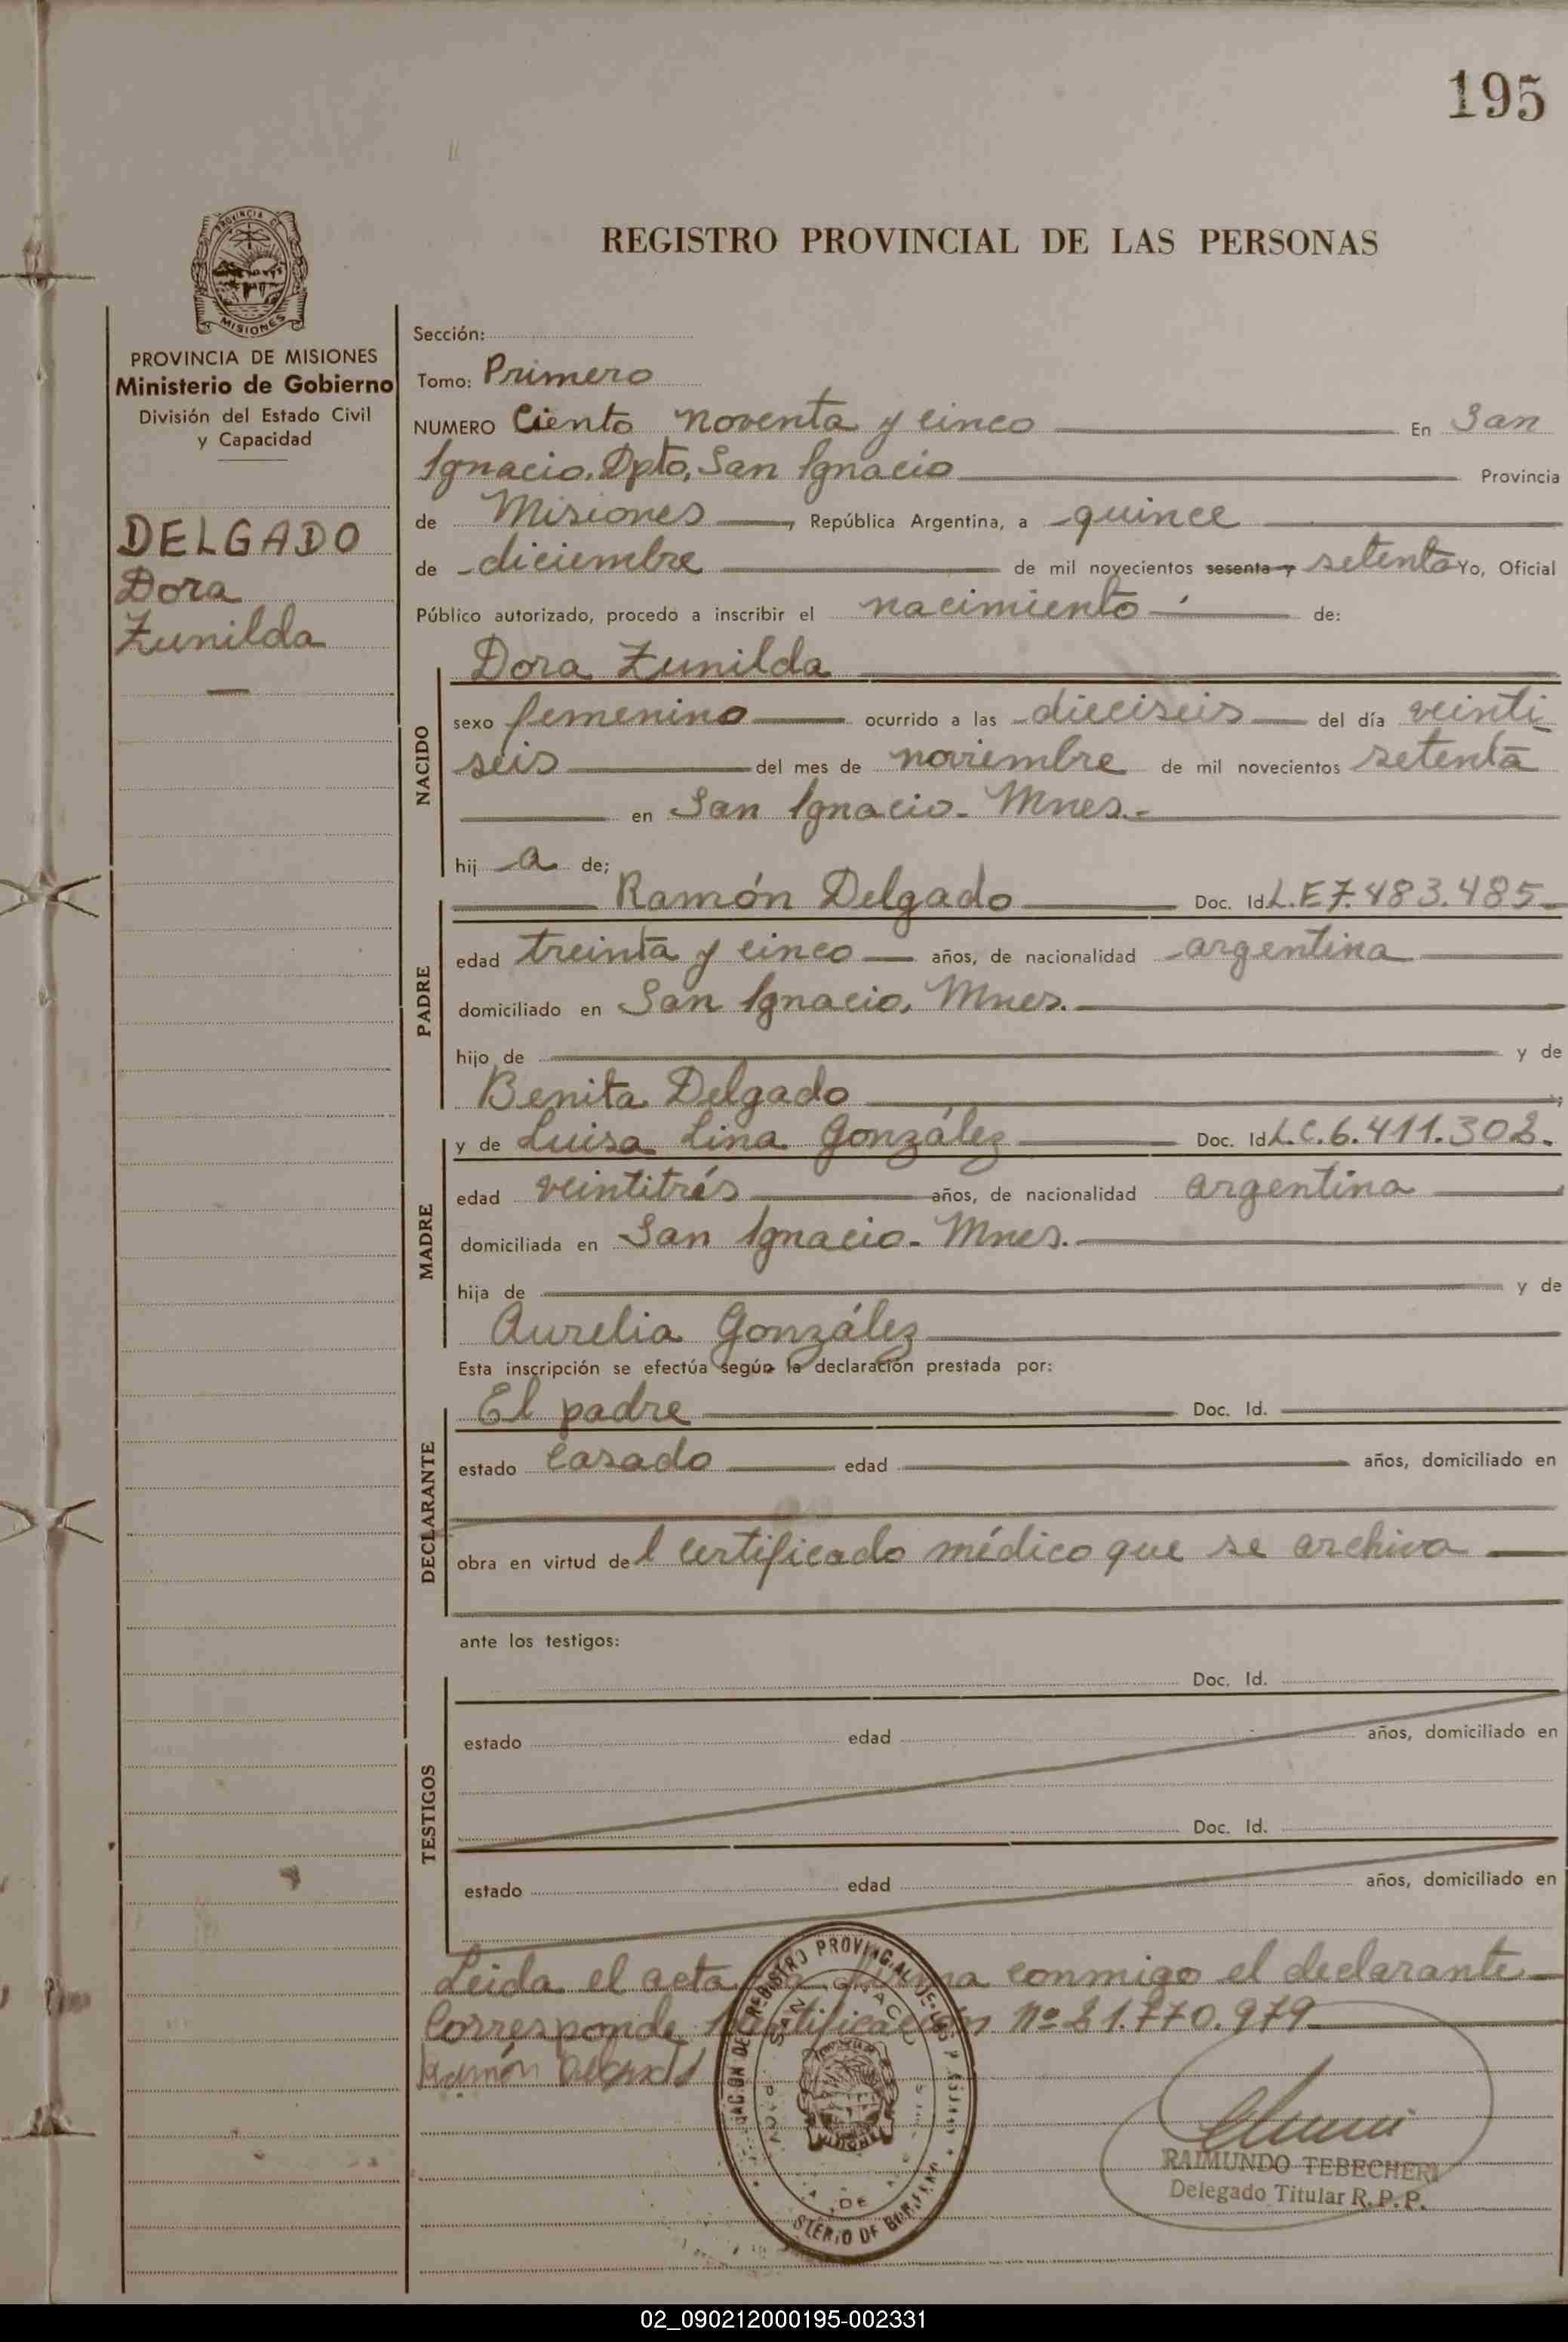 195
PROVINCIA DE
MISIONES
REGISTRO PROVINCIAL DE LAS PERSONAS
PROVINCIA DE MISIONES
Ministerio de Gobierno
División del Estado Civil
y Capacidad
DELGADO
Dora
Zunilda
Sección:
Tomo: Primero
NUMERO Ciento noventa y cinco En San
Ignacio. Dpto. San Ignacio Provincia
de Misiones, República Argentina, a quince
de diciembre de mil novecientos sesenta y setenta Yo, Oficial
Público autorizado, procedo a inscribir el nacimiento de:
Dora Zunilda
NACIDO
sexo femenino ocurrido a las dieciseis del día veinti
seis del mes de noviembre de mil novecientos setenta
en San Ignacio. Mnes.-
hij a de;
PADRE
Ramón Delgado Doc. Id. L.E 7.483.485
edad treinta y cinco años, de nacionalidad argentina
domiciliado en San Ignacio. Mnes.
hijo de y de
Benita Delgado;
MADRE
y de Luisa Lina González Doc. Id. L.C. 6.411.302.
edad veintitrés años, de nacionalidad argentina
domiciliada en San Ignacio. Mnes.
hija de y de
Aurelia González
Esta inscripción se efectúa según la declaración prestada por:
DECLARANTE
El padre Doc. Id.
estado Casado edad años, domiciliado en
obra en virtud del certificado médico que se archiva
ante los testigos:
TESTIGOS
Doc. Id.
estado edad años, domiciliado en
Doc. Id.
estado edad años, domiciliado en
Leida el acta conmigo el declarante
Corresponde Identificación nº 21.770.979
Ramón Delgado
REGISTRO PROVINCIAL DE LAS
SAN IGNACIO
DE
RAIMUNDO TEBECHERI
Delegado Titular R.P.P.
02_090212000195-002331